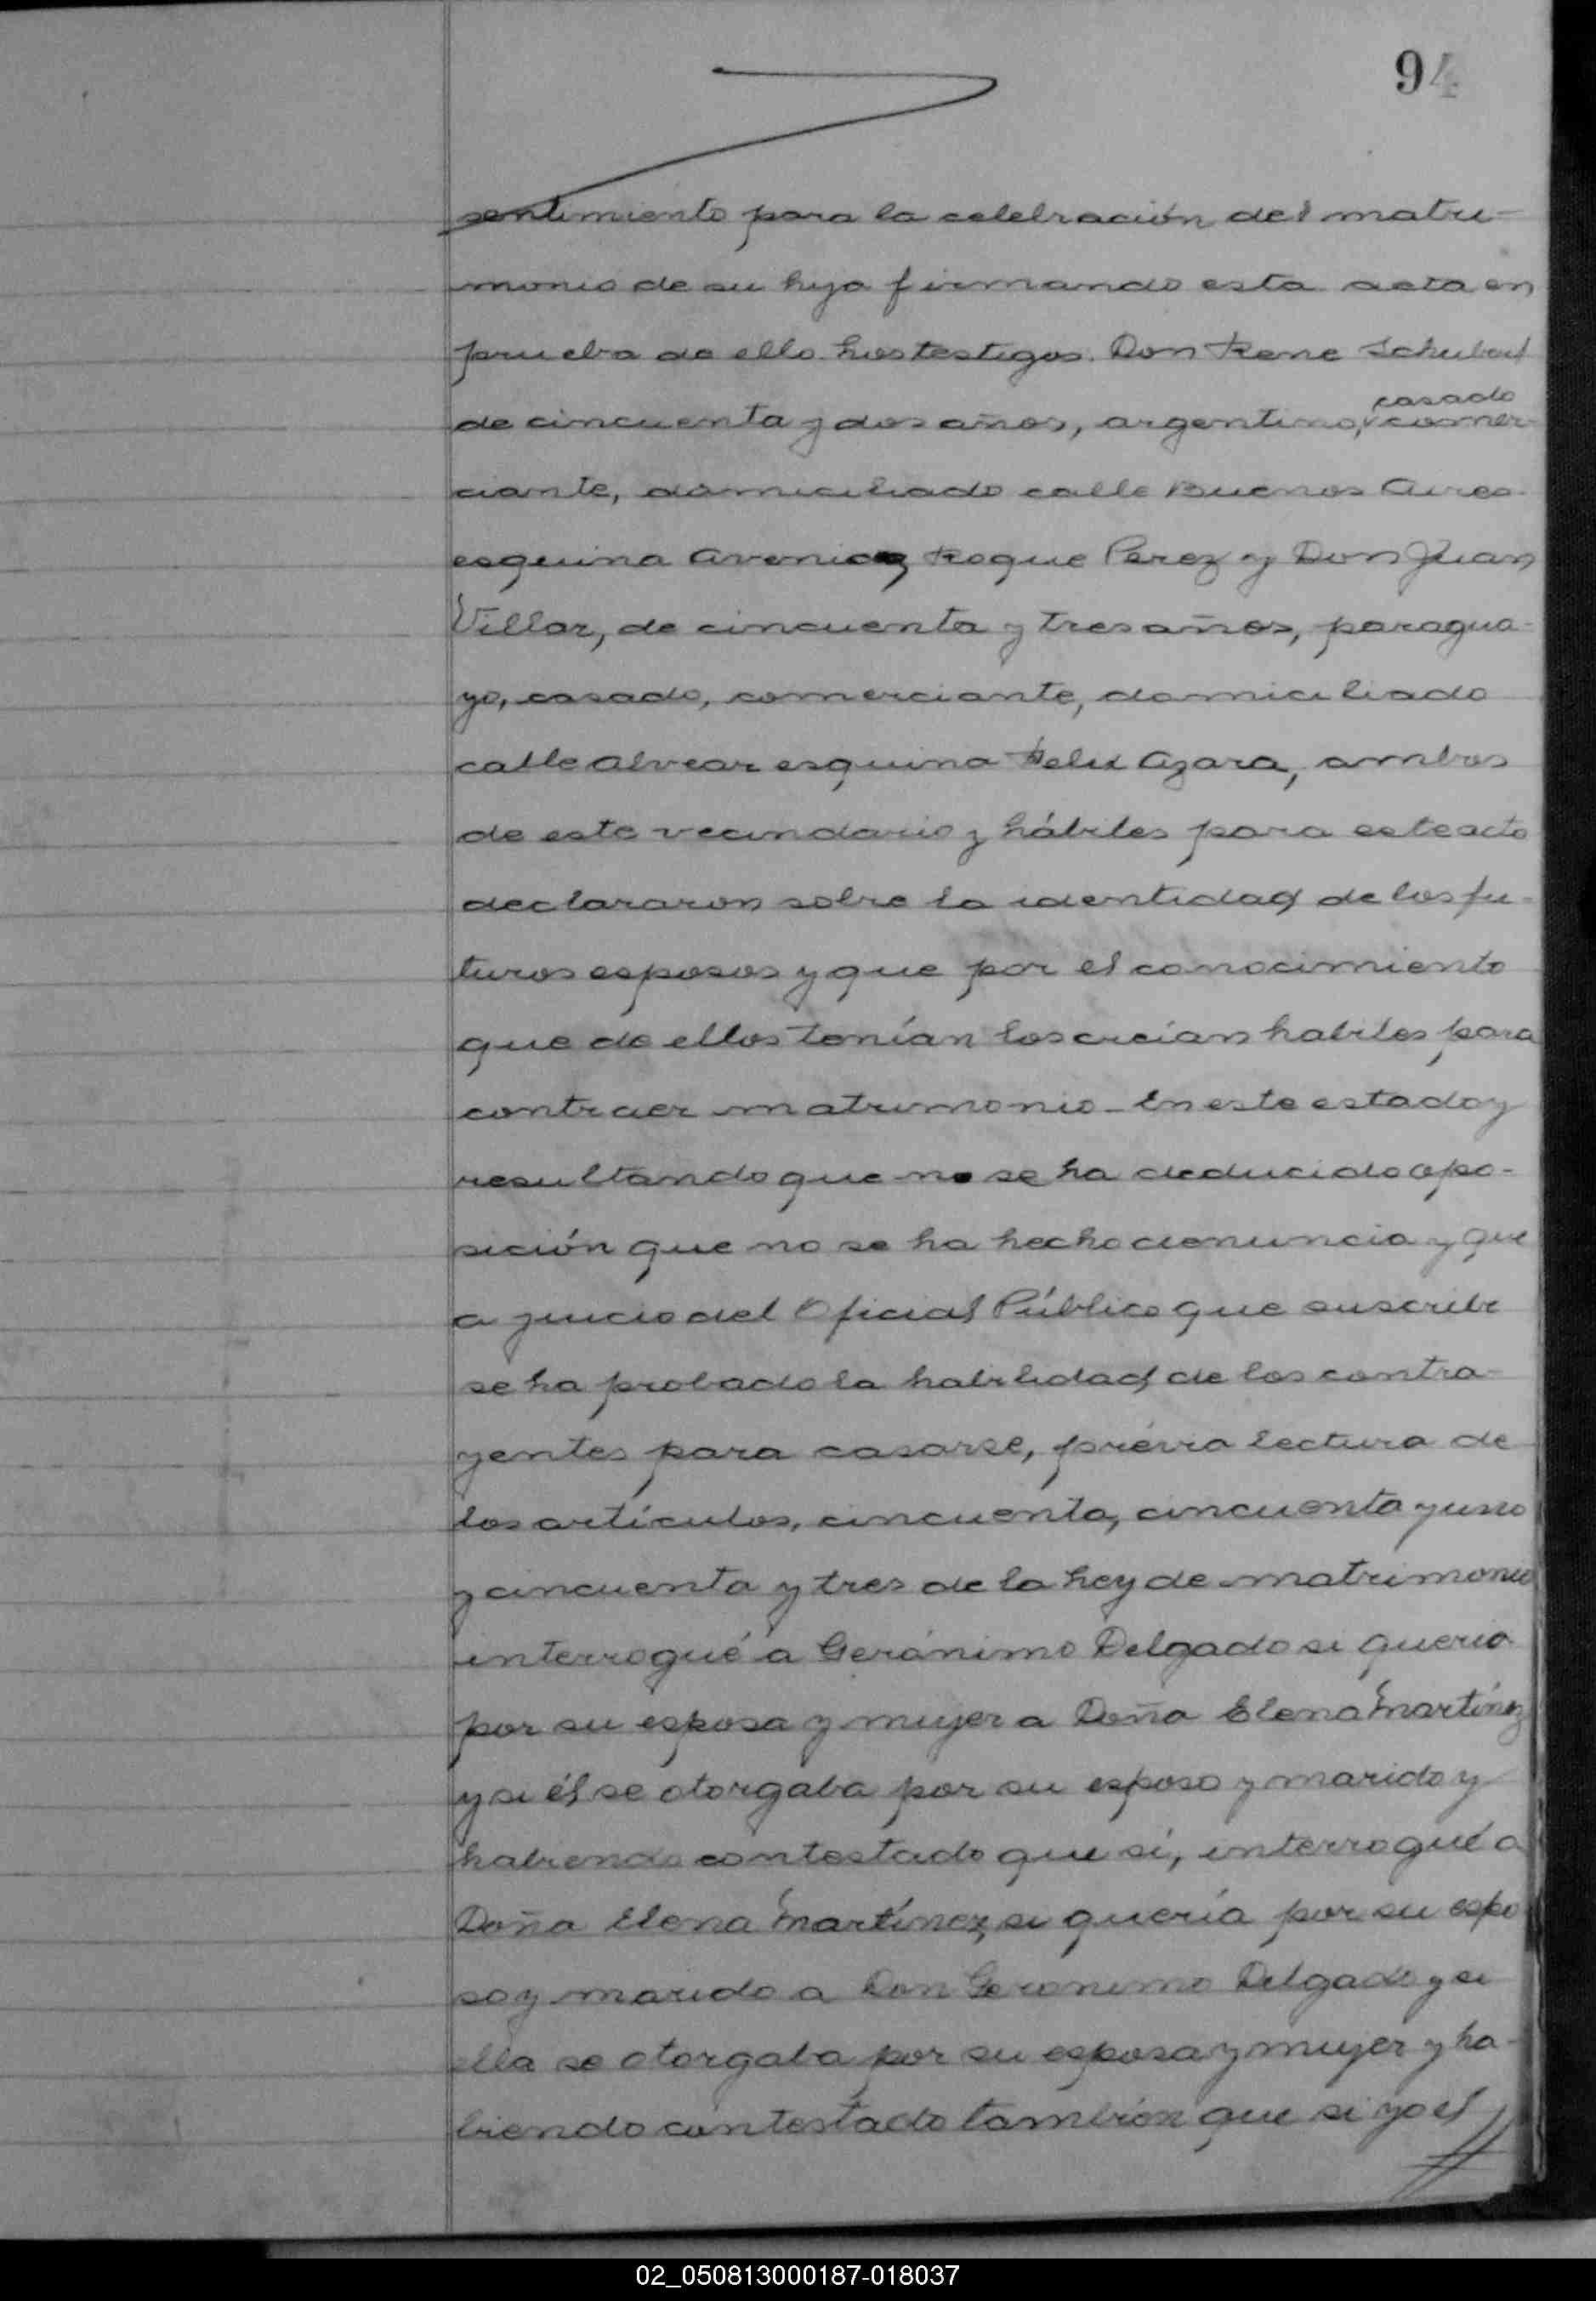 94
sentimiento para la celebración del matri-
monio de su hija firmando esta acta en
prueba de ello. Los testigos. Don Rene Schubert
casado
de cincuenta y dos años, argentino, comer-
ciante, domiciliado calle Buenos Aires
esquina Avenida Roque Perez y Don Juan
Villar, de cincuenta y tres años, paragua-
yo, casado, comerciante, domiciliado
calle Alvear esquina Felix Azara, ambos
de este vecindario y hábiles para este acto
declararon sobre la identidad de los fu-
turos esposos y que por el conocimiento
que de ellos tenían los creían habiles para
contraer matrimonio - En este estado y
resultando que no se ha deducido opo-
sición que no se ha hecho denuncia y que
a juicio del Oficial Público que suscribe
se ha probado la habilidad de los contra-
yentes para casarse, prévia lectura de
los artículos, cincuenta, cincuenta y uno
y cincuenta y tres de la Ley de matrimonio
interrogué a Gerónimo Delgado si queria
por su esposa y mujer a Doña Elena Martínez
y si él se otorgaba por su esposo y marido y
habiendo contestado que sí, interrogué a
Doña Elena Martínez, si quería por su espo
so y marido a Don Geronimo Delgado y si
ella se otorgaba por su esposa y mujer y ha-
biendo contestado también que si yo el
02_050813000187-018037